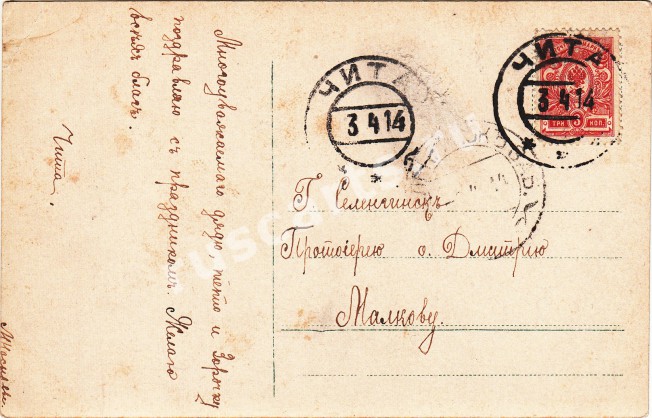 Многоуважаемаго дядю, тетю и Зорочку
поздравляю съ праздникомъ. Желаю
всѣхъ благъ.
Чита.
ЧИТА
3 4 14
ЧИТА
3 4 14
ТРИ 3 КОП.
Г. Селенгинскъ
Протоіерею о. Дмитрію
Малкову.
ruscards.ru